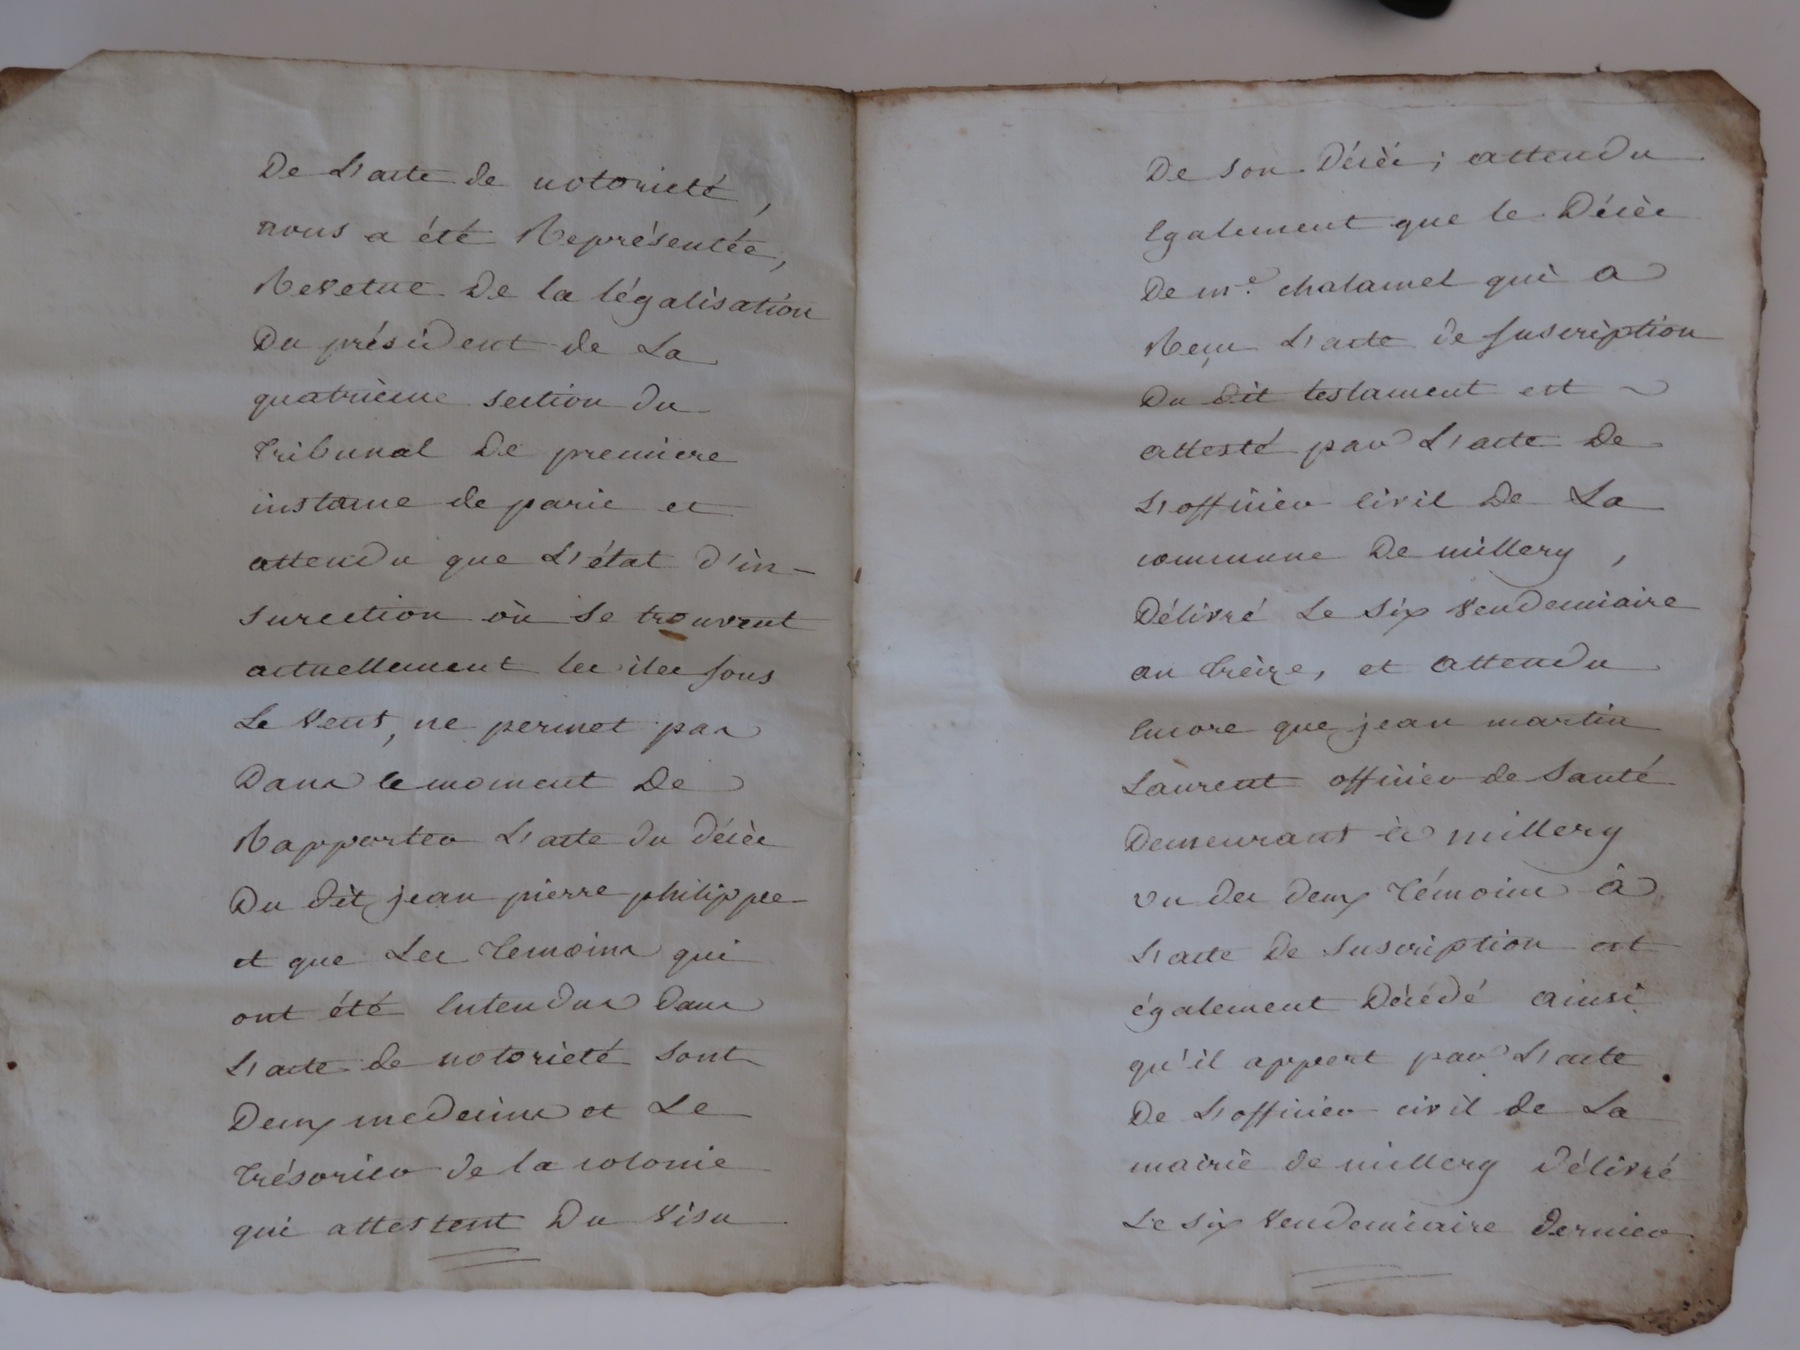 De L'acte de notorieté,
nous a été Représentée,
Revetue De la légalisation
Du président de La
quatrieme section du
tribunal De premiere
instance de paris et
attendu que L'état d'in-
surection où se trouvent
actuellement les iles sous
Le Vent, ne permet pas
Dans le moment De
Rapporter L'acte du décès
Du dit jean pierre philippe
et que Les temoins qui
ont été Entendus dans
L'acte de notorieté sont
Deux medecins et Le
trésorier de la colonie
qui attestent Du Visu
De son Décès; attendu
Egalement que le Décès
De me. chalamel qui a
Reçu L'acte de suscription
Du dit testament est
attesté par L'acte De
L'officier Civil De La
commune De millery,
Délivré Le six Vendemiaire
an treize, et attendu
Encore que jean martin
Laurent officier de Santé
Demeurant à millery
un des deux témoins à
L'acte De Suscription est
également Décédé ainsi
qu'il appert par L'acte
De L'officier civil de La
mairie de millery Délivré
Le six Vendemiaire dernier